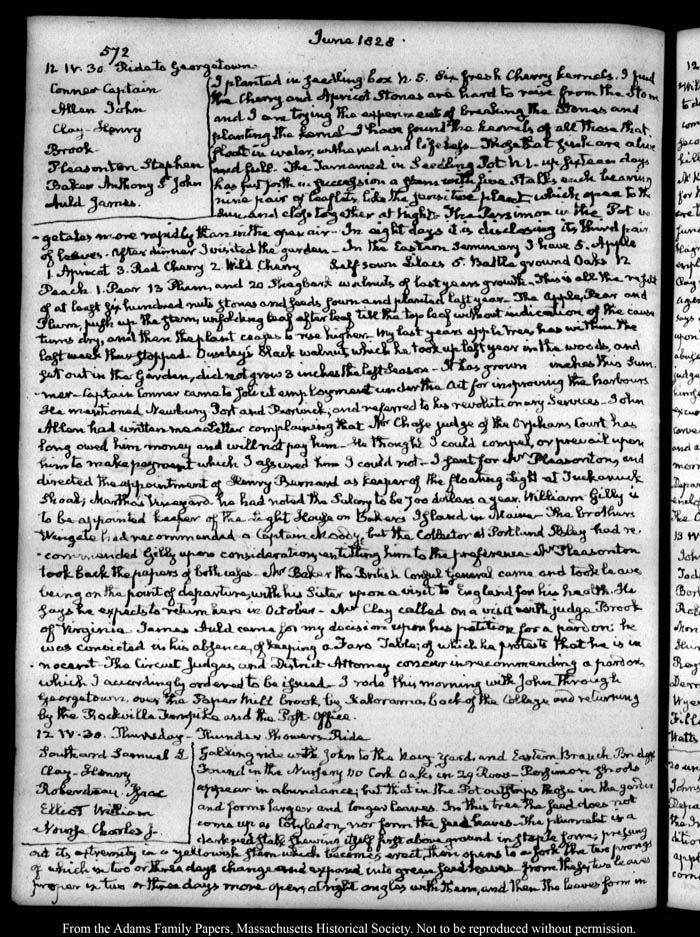 June 1828.
572
12 IV. 30. Ride to Georgetown.
Conner Captain
Allen John
Clay Henry
Brook
Pleasonton Stephen
Baker Anthony S<sup>t</sup> John
Auld James.
I planted in seedling box N. 5. Six fresh Cherry kernels. I find
the Cherry and Apricot Stones are hard to raise from the Stone
and I am trying the experiment of breaking the Stones and
planting the kernel I have found the kernels of all those that
float in water, withered and lifeless. Those that sink are alive
and full. The Tamarind in Seedling Pot N 1. up fifteen days
has put forth in succession a stem with five stalks each bearing
nine pair of leaflets, like the sensitive plant, which open to the
Sun, and close together at Night. The Persimon in the Pot ve
-getates more rapidly than in the open air. In eight days it is disclosing its third pair
of leaves. After dinner I visited the garden. In the Eastern Seminary I have 5. Apple
1. Apricot 3. Red Cherry 2. Wild Cherry self sown Lilacs 5. Battle ground Oaks 12
Peach 1. Pear 13 Plum, and 20 Shagbark walnuts of last years growth. This is all the result
of at least six hundred nuts stones and seeds sown and planted last year. The Apple, Pear and
Plum, push up the stem, unfolding leaf after leaf till the top leaf without indication of the cause
turns dry, and then the plant ceases to rise higher. My last years apple trees, has within the
last week thus stopped. Ousley's Black walnut, which he took up last year in the woods, and
set out in the Garden, did not grow 3 inches the last Season. It has grown inches this Sum
-mer. Captain Conner came to solicit employment under the Act for improving the harbours
He mentioned Newbury Port and Merrimack; and referred to his revolutionary Services. John
Allen had written me a Letter complaining that Mr Chase judge of the Orphans Court has
long owed him money and will not pay him. He thought I could compel, or prevail upon
him to make payment which I assured him I could not. I sent for Mr Pleasonton, and
directed the appointment of Henry Barnard as keeper of the floating Light at Tuckanuck
Shoal; Martha's Vineyard. he had noted the Salary to be 700 dollars a year. William Gilly is
to be appointed keeper of the Light House on Baker's Island in Maine. The brothers
Wingate had recommended a Captain Moody, but the Collector at Portland Ilsley had re
-commended Gilly upon considerations entitling him to the preference. Mr Pleasonton
took back the papers of both cases. Mr Baker the British Consul General came and took leave
being on the point of departure, with his Sister upon a visit to England for his health. He
says he expects to return here in October. Mr Clay called on a visit with judge Brook
of Virginia. James Auld came for my decision upon his petition for a pardon: he
was convicted in his absence, of keeping a Faro Table; of which he protests that he is in
-nocent. The Circuit Judges and District Attorney concur in recommending a pardon
which I accordingly ordered to be issued. I rode this morning with John through
Georgetown, over the Paper Mill brook, by Kalorama, back of the College and returning
by the Rockville Turnpike and the Post Office.
12 IV. 30. Thursday. Thunder Showers. Ride
Southard Samuel L
Clay Henry
Roberdeau Isaac
Elliot William
Nourse Charles J.
Galloping ride with John to the Navy Yard, and Eastern Branch Bridge
Found in the Nursery 110 Cork Oaks in 29 Rows. Persimon shoots
appear in abundance; but that in the Pot outstrips those in the garden
and forms larger and longer leaves. In this tree the seed does not
come up as Cotyledon, nor form the seed leaves. The plumulet is a
darkened stalk shewing itself first above ground in staple form; pressing
out its extremity in a yellowish stem which becomes erect, then opens to a fork the two prongs
of which in two or three days change and expand into green seed leaves. from these, two leaves
proper in two or three days more open, at right angles with them, and then the leaves form in
From the Adams Family Papers, Massachusetts Historical Society. Not to be reproduced without permission.